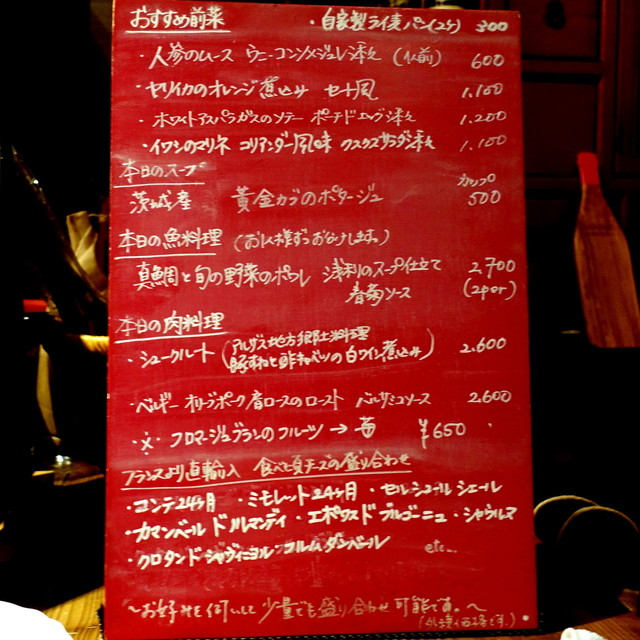 おすすめ前菜 ・自家製ライ麦パン(2ケ) 300
・人参のムース ウニ・コンソメジュレ添え (1人前) 600
・ヤリイカのオレンジ煮込み セート風 1.100
・ホワイトアスパラガスのソテー ポーチドエッグ添え 1.200
・イワシのマリネ コリアンダー風味 クスクスサラダ添え 1.100
本日のスープ
茨城産 黄金カブのポタージュ カップ 500
本日の魚料理 (お1人様ずつお分けします。)
真鯛と旬の野菜のポワレ 浅利のスープ仕立て 2.700
春菊ソース (2per)
本日の肉料理
・シュークルート (アルザス地方郷土料理 豚すねと酢キャベツの白ワイン煮込み) 2.600
・ベルギー オリーブポーク肩ロースのロースト バルサミコソース 2.600
・※ フロマージュブランのフルーツ → 苺 ¥650
フランスより直輸入 食べ頃チーズの盛り合わせ
・コンテ24ヶ月 ・ミモレット24ヶ月 ・セルシュールシェール
・カマンベール ド ノルマンディ ・エポワスドブルゴーニュ ・シャウルス
・クロタンドシャヴィニョル・フルムダンベール etc...
〜お好みを伺いして少量でも盛り合わせ可能です。〜